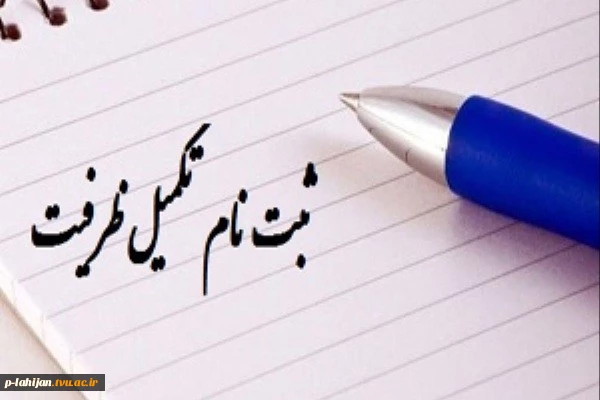 ثبت نام تکمیل ظرفیت
p-lahijan.tvu.ac.ir